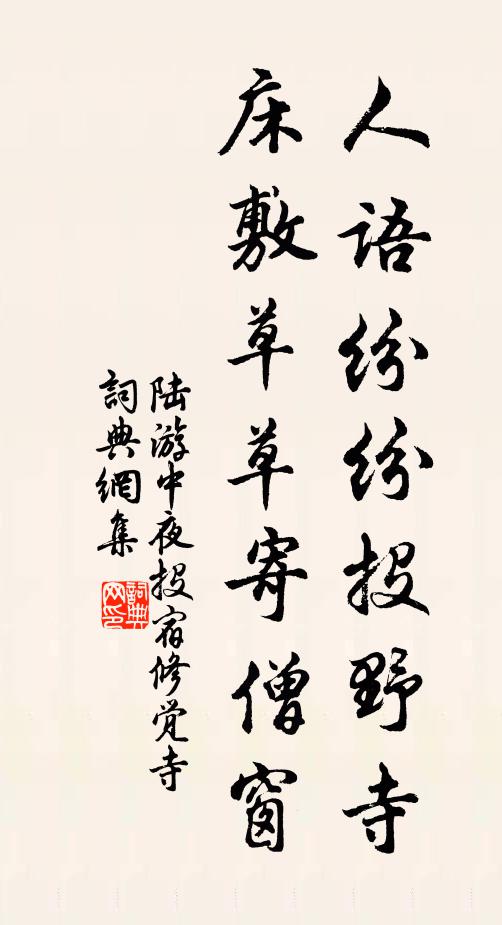 人語紛紛投野寺
床敷草草寄僧窗
陆游中夜投宿修覚寺
詞典網集
詞典網印